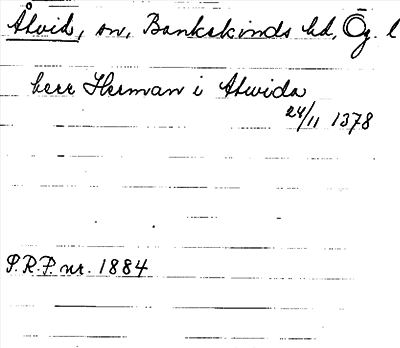 Åtvid, sn, Bankekinds hd, Ög. l
herr Herman i Atwida
24/11 1378
P.R.P. nr. 1884